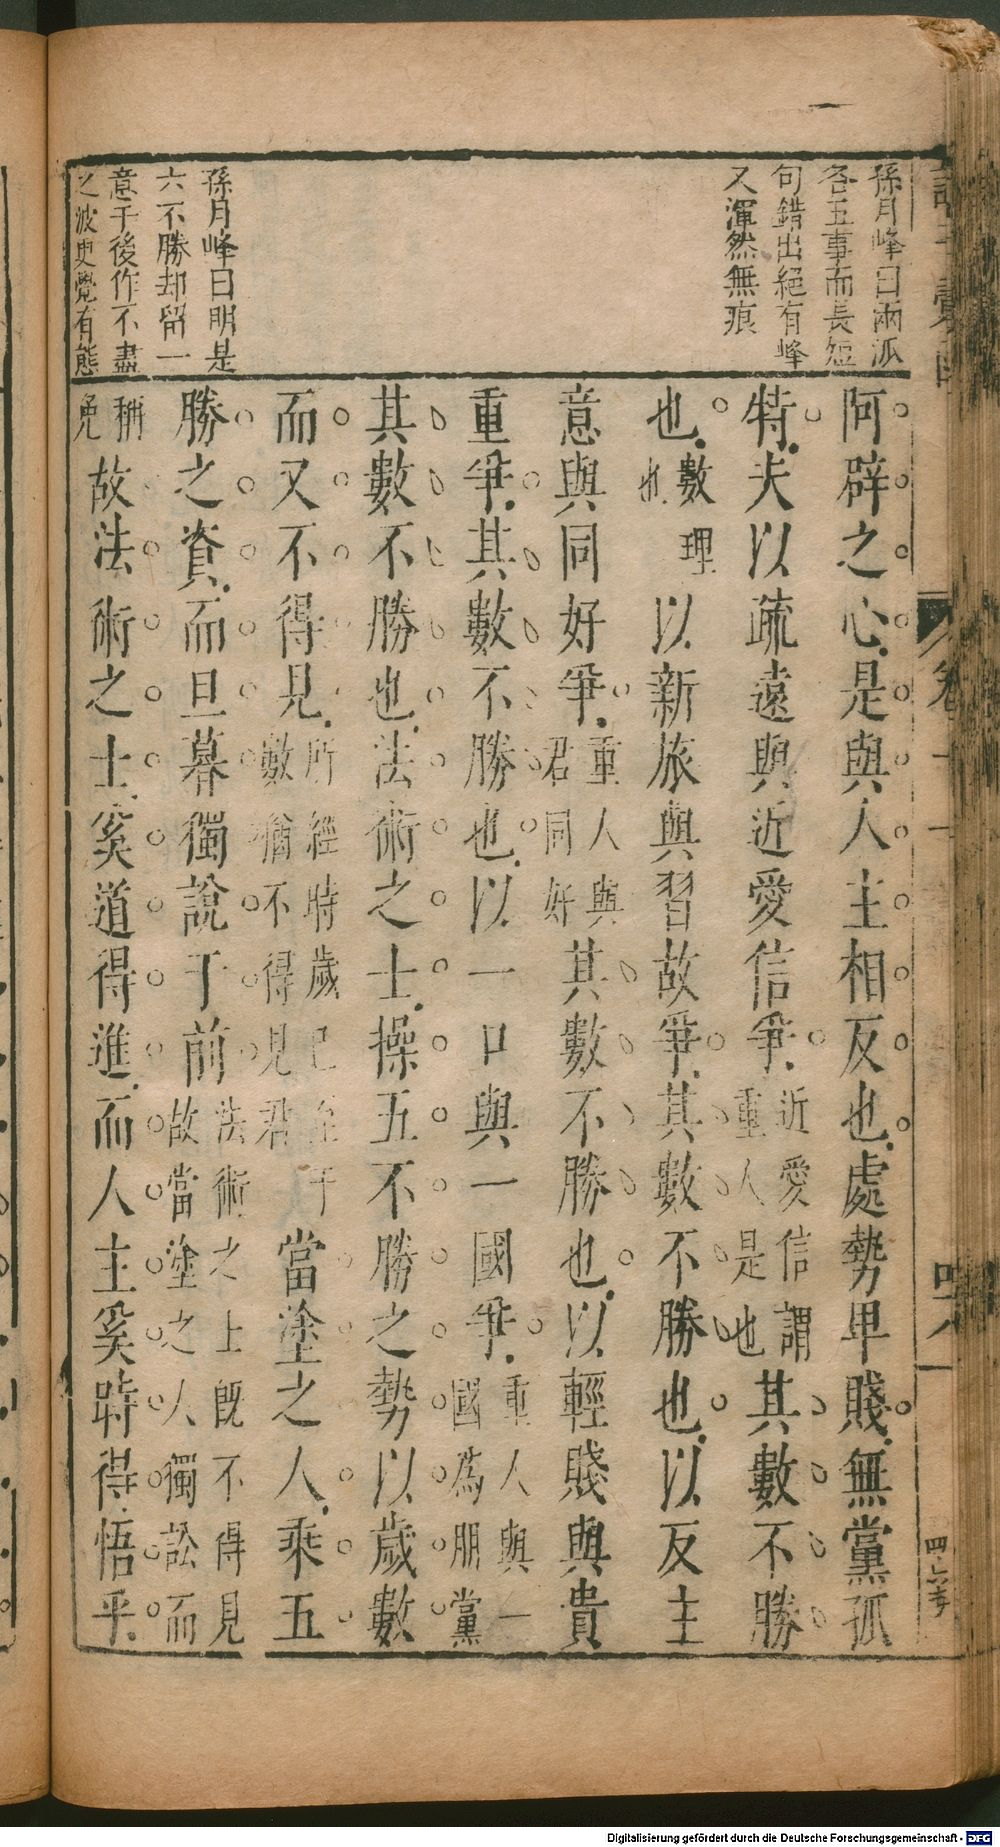 孫月峰曰兩派
各五事而長短
句錯出絕有峰
又渾然無痕
孫月峰曰明是
六不勝却留一
意于後作不盡
之波更覺有態
阿辟之心是與人主相反也處勢卑賤無黨孤
特夫以疏遠與近愛信爭近愛信謂重人是也其數不勝
也數理也以新旅與習故爭其數不勝也以反主
意與同好爭重人與君同好其數不勝也以輕賤與貴
重爭其數不勝也以一口與一國爭重人與一國為朋黨
其數不勝也法術之士操五不勝之勢以歲數
而又不得見所經時歲已至于數猶不得見君當塗之人乘五
勝之資而旦暮獨說于前法術之士既不得見故當塗之人獨訟而
稱免故法術之士奚道得進而人主奚時得悟乎
四六
Digitalisierung gefördert durch die Deutsche Forschungsgemeinschaft - DFG